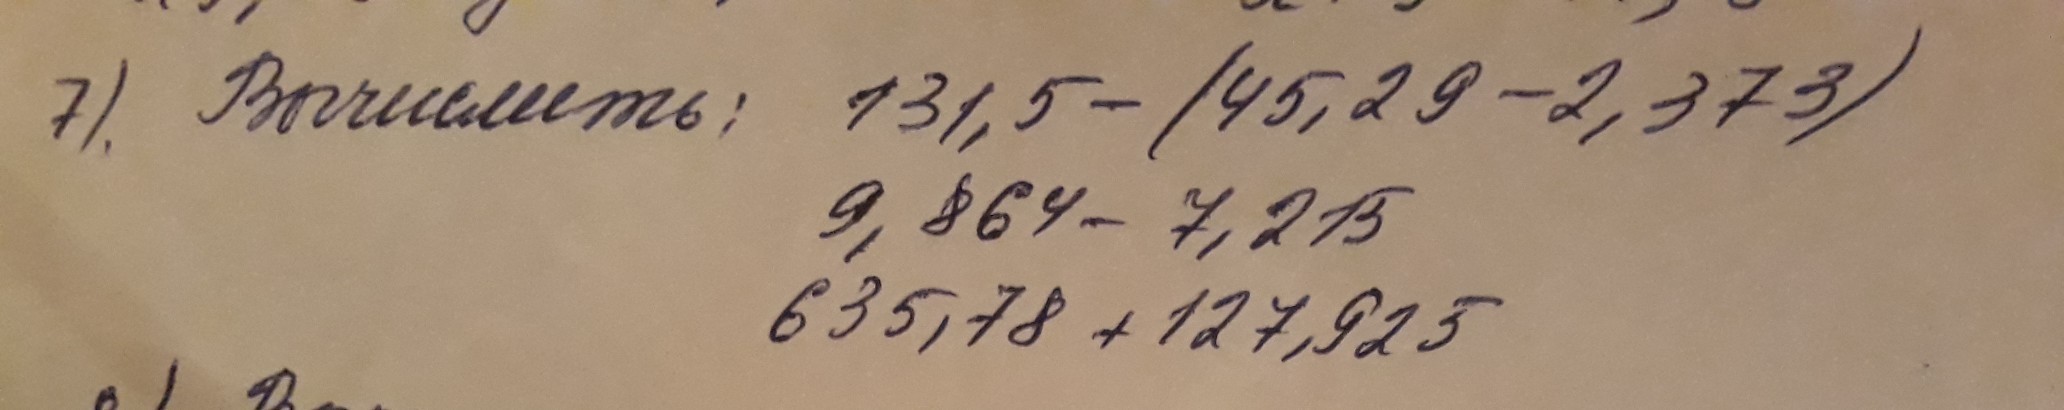 7). Вычислить: 131,5 - (45,29 - 2,373)
9,864 - 7,215
635,78 + 127,925